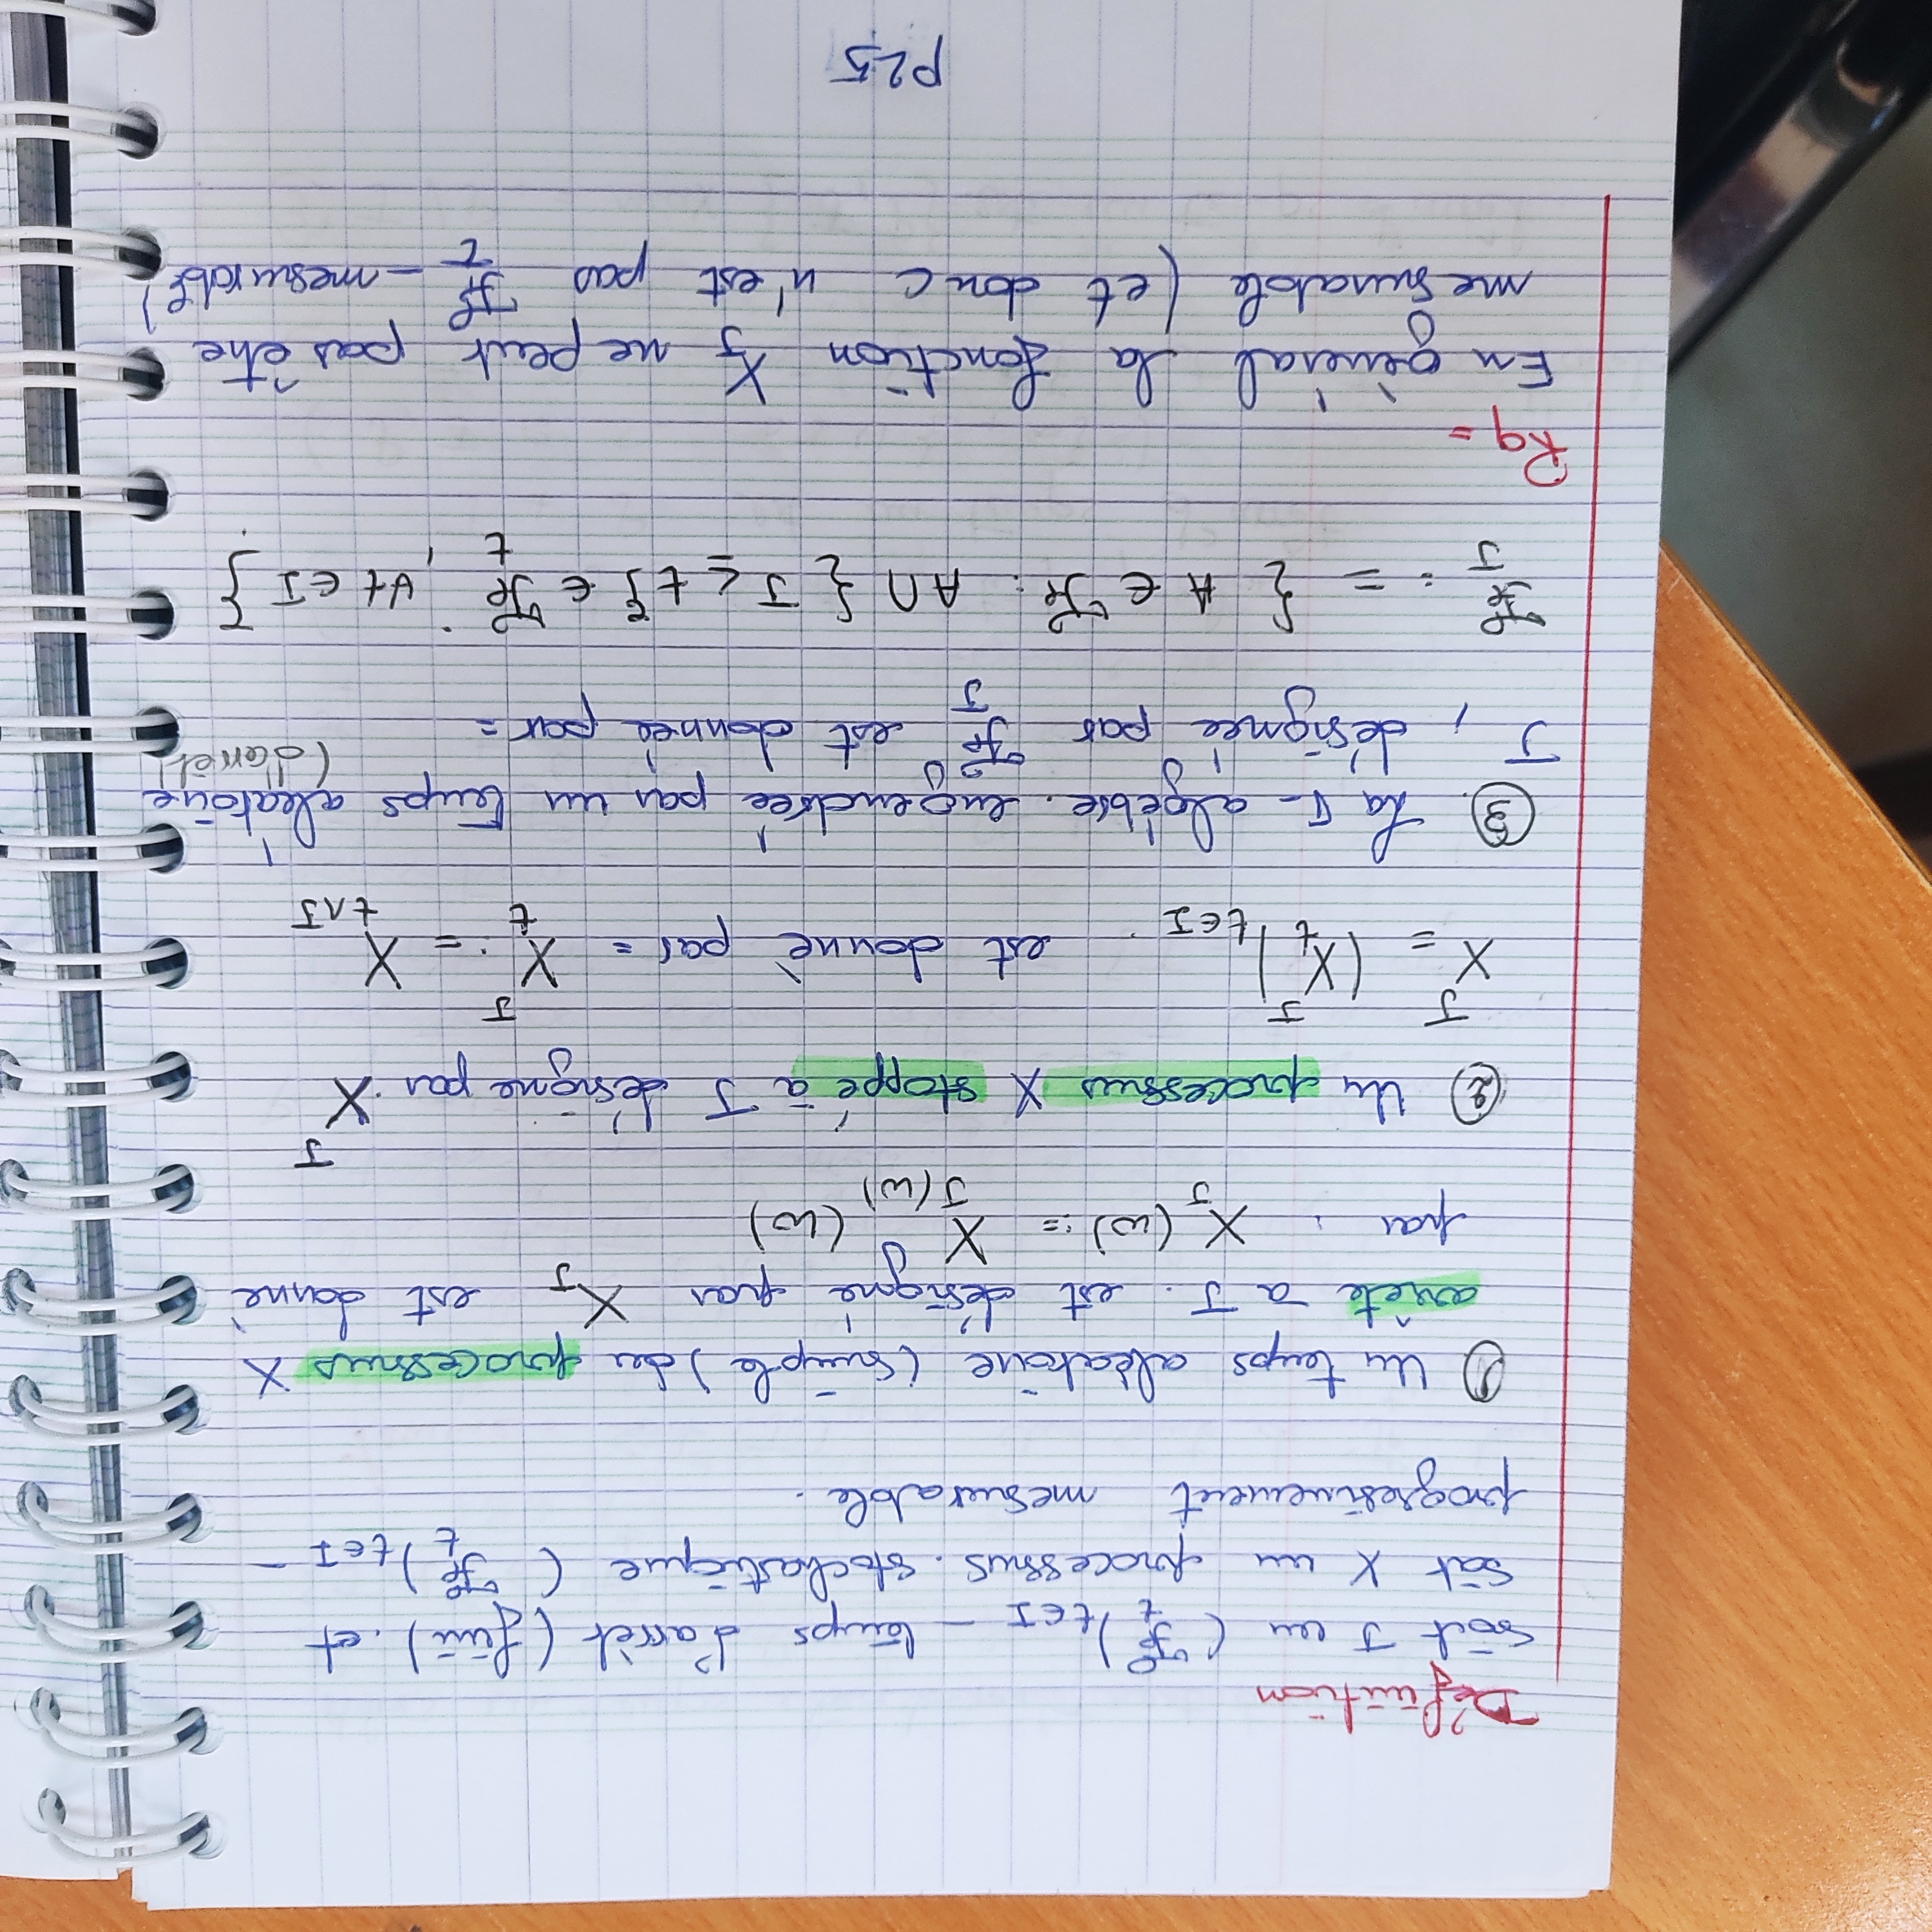 Définition
Soit J un (ℱ_t)_{t∈I} - temps d'arrèt (fini). et
Soit X un processus. stochastique (ℱ_t)_{t∈I} -
progresivement mesurable.
① Un temps aléatoire (simple) du processus X
arrête à J. est désigné par X_J est donné
par : X_J(ω) := X_{J(ω)}(ω)
② Un processus X stoppé à J désigne par X^J
X^J = (X_t^J)_{t∈I}. est donnè par = X_t^J := X_{t∧J}
③. La σ- algébre. engendrée par un temps aléatoire
(d'arrêt)
J, désignée par ℱ_J est donnée par =
ℱ_J := { A ∈ ℱ : A ∩ { J ≤ t } ∈ ℱ_t , ∀t ∈ I }
Rq =
En général la fonction X_J ne peut pas être
mesurable (et donc n'est pas ℱ_τ - mesurable)
P25